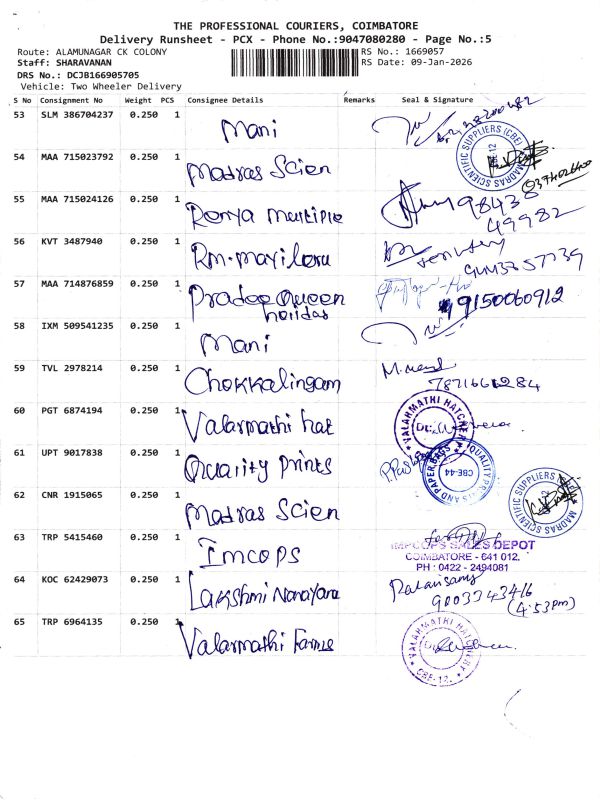 THE PROFESSIONAL COURIERS, COIMBATORE
Delivery Runsheet - PCX - Phone No.:9047080280 - Page No.:5
Route: ALAMUNAGAR CK COLONY RS No.: 1669057
Staff: SHARAVANAN RS Date: 09-Jan-2026
DRS No.: DCJB166905705
Vehicle: Two Wheeler Delivery
S No Consignment No Weight PCS Consignee Details Remarks Seal & Signature
53 SLM 386704237 0.250 1 Mani
MADRAS SCIENTIFIC SUPPLIERS (CBE) 12
54 MAA 715023792 0.250 1 Madras Scien
55 MAA 715024126 0.250 1 Ramya multiple 98438
49982
56 KVT 3487940 0.250 1 Rm. mayileru
57 MAA 714876859 0.250 1 Pradeep Queen
holidas 9150060912
58 IXM 509541235 0.250 1 Mani
59 TVL 2978214 0.250 1 Chokkalingam
7871661284
60 PGT 6874194 0.250 1 Valarmathi hat
VALARMATHI HATCHERY
61 UPT 9017838 0.250 1 Quality prints
QUALITY PRINTS AND PAPER BAGS CBE-44
62 CNR 1915065 0.250 1 Madras Scien
MADRAS SCIENTIFIC SUPPLIERS (CBE) 12
63 TRP 5415460 0.250 1 Imcops
IMPCOPS SALES DEPOT
COIMBATORE - 641 012.
PH : 0422 - 2494081
64 KOC 62429073 0.250 1 Lakshmi Narayana
9003343416
(4:53pm)
65 TRP 6964135 0.250 1 Valarmathi Farms
VALARMATHI HATCHERY CBE-12.